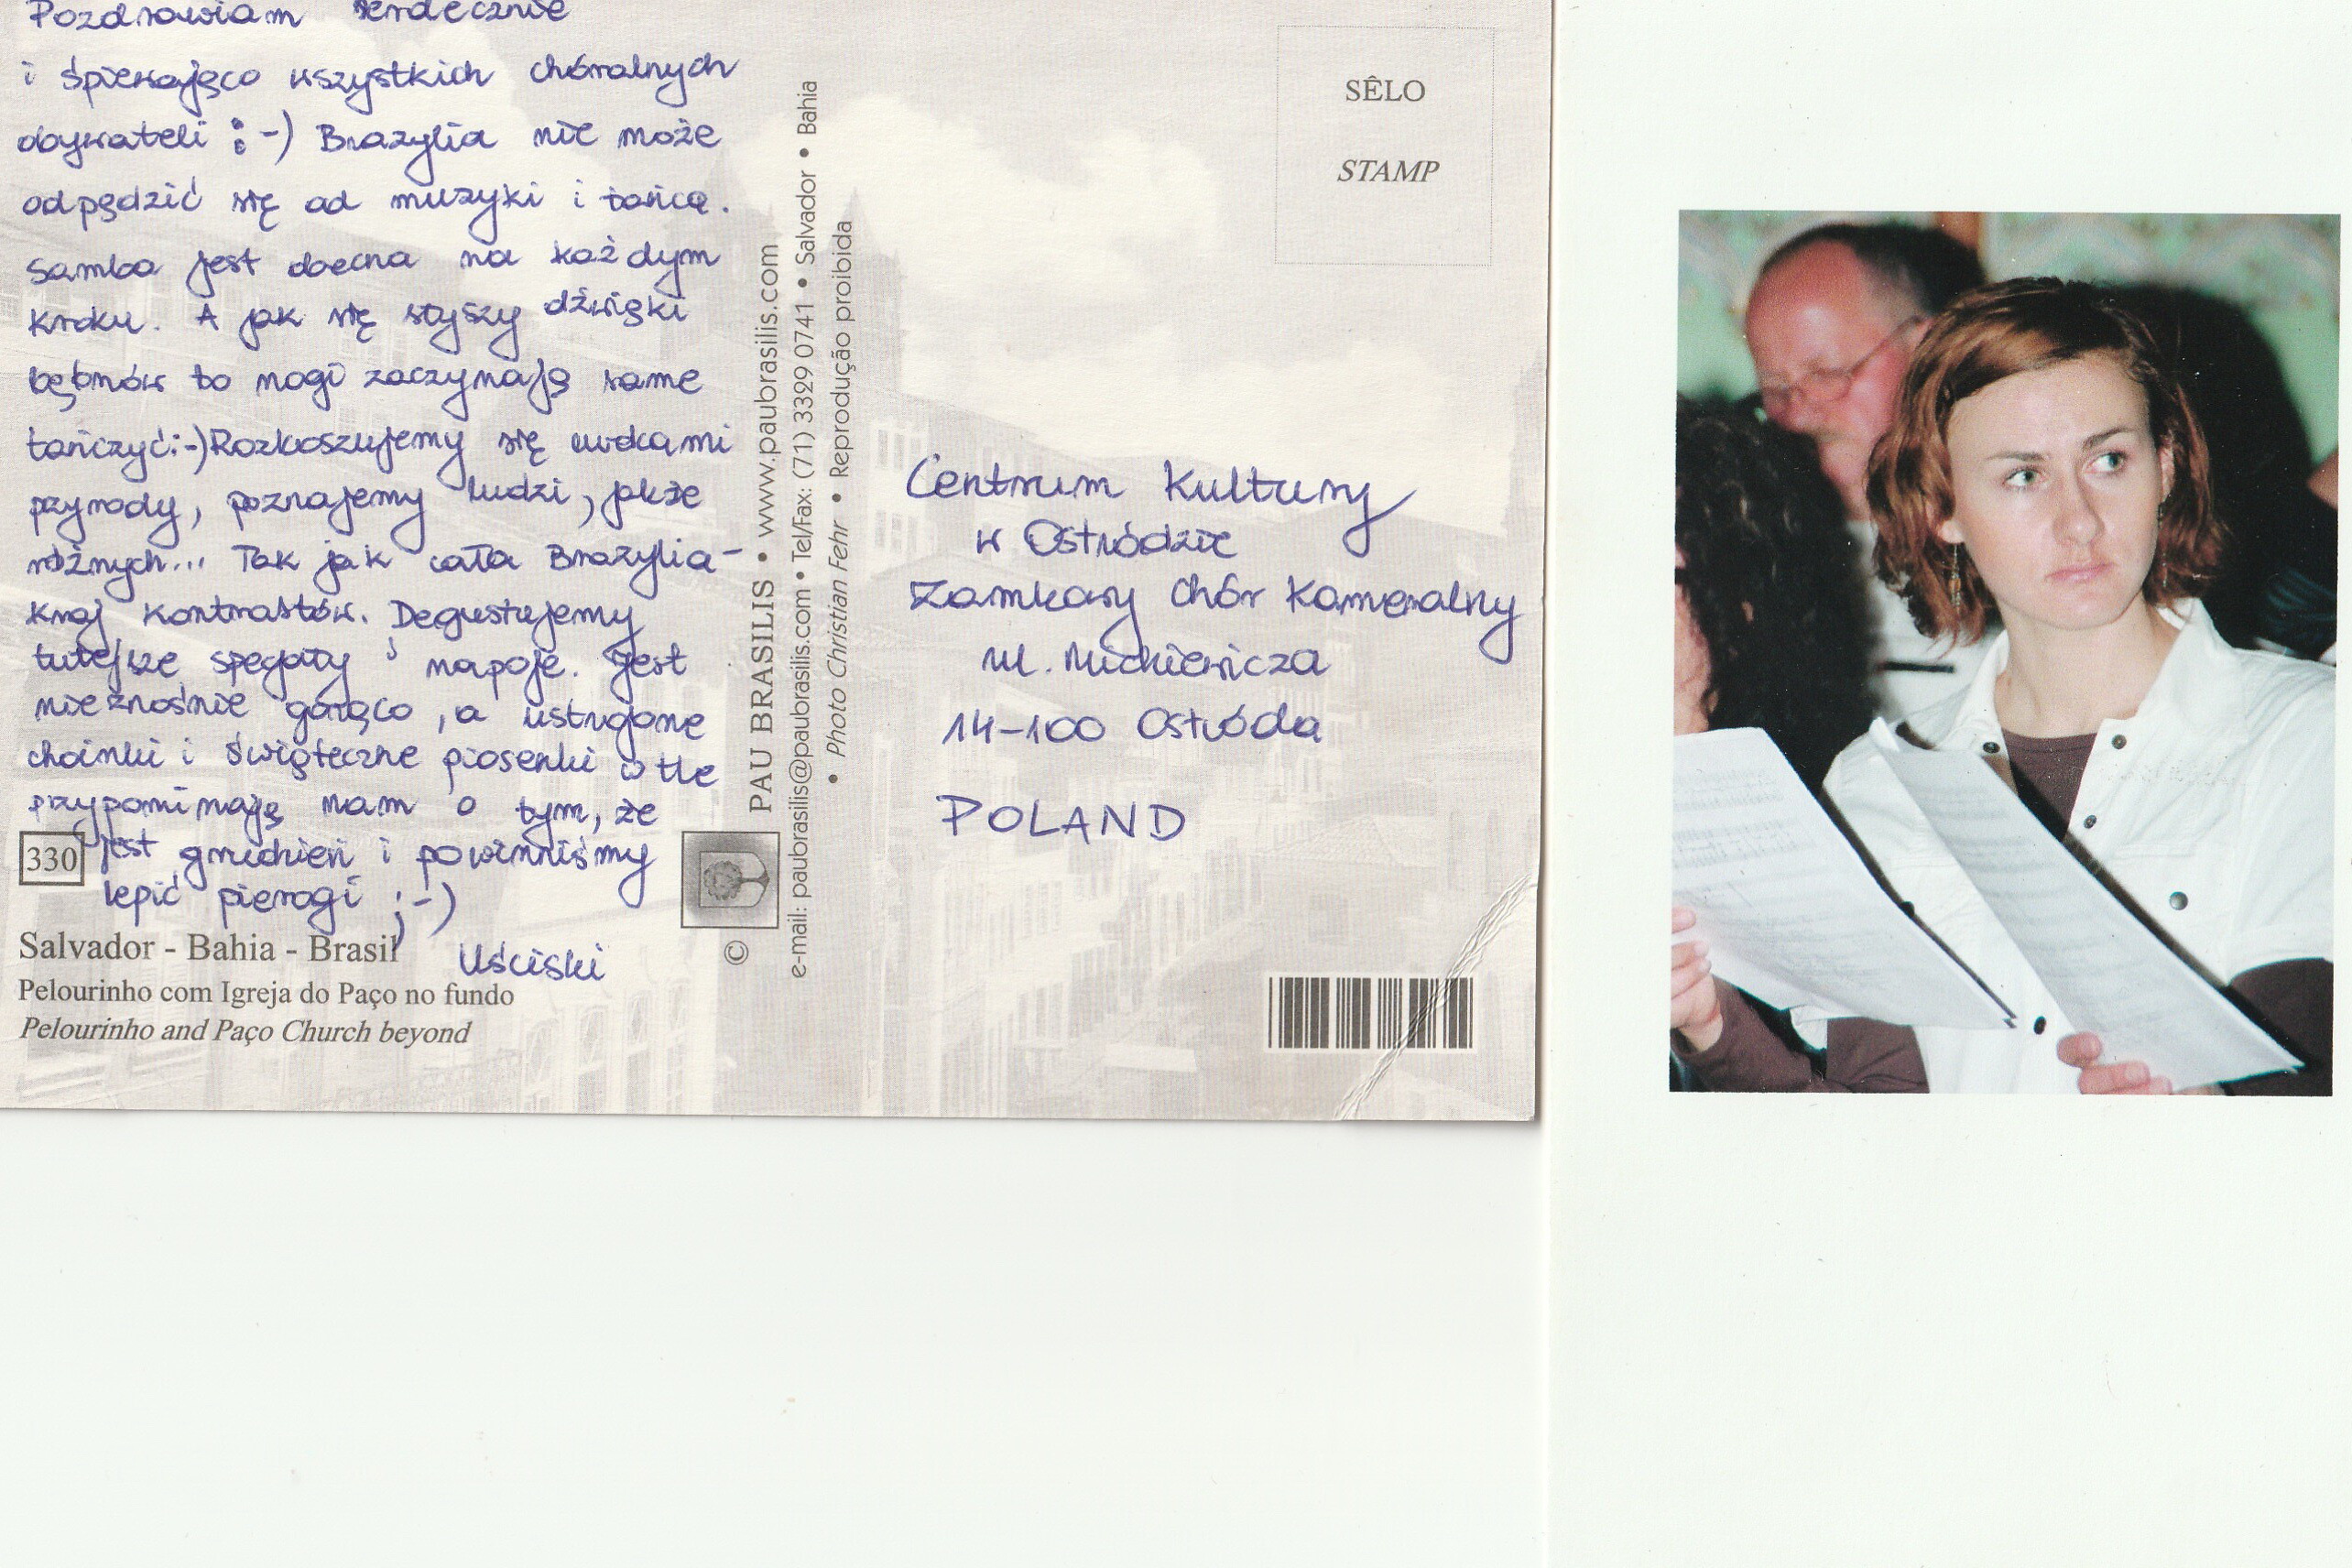 Pozdrawiam serdecznie
i śpiewająco wszystkich chóralnych
obywateli :-) Brazylia nie może
odpędzić się od muzyki i tańca.
Samba jest obecna na każdym
kroku. A jak się słyszy dźwięki
bębnów to nogi zaczynają same
tańczyć:-) Rozkoszujemy się cudami
przyrody, poznajemy ludzi, jakże
różnych... Tak jak cała Brazylia-
kraj kontrastów. Degustujemy
tutejsze specjały i napoje. Jest
nieznośnie gorąco, a ustrojone
choinki i świąteczne piosenki w tle
przypominają nam o tym, że
jest grudzień i powinniśmy
lepić pierogi ;-)
Uściski
330
Salvador - Bahia - Brasil
Pelourinho com Igreja do Paço no fundo
Pelourinho and Paço Church beyond
© PAU BRASILIS • www.paubrasilis.com
e-mail: paubrasilis@paubrasilis.com • Tel/Fax: (71) 3329 0741 • Salvador • Bahia
• Photo Christian Fehr • Reprodução proibida
SÊLO
STAMP
Centrum Kultury
w Ostródzie
Zamkowy Chór Kameralny
ul. Mickiewicza
14-100 Ostróda
POLAND